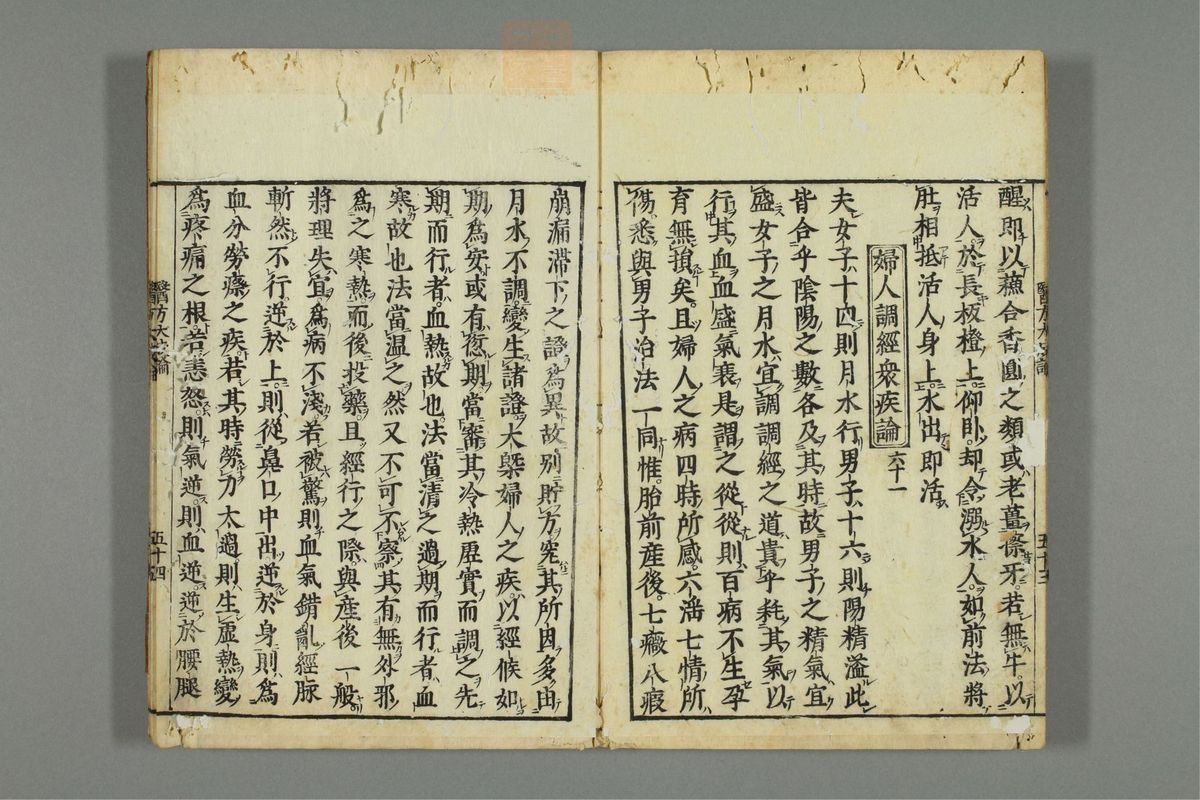 醒即以蘓合香圓之類或老薑擦牙若無牛以
活人於長板櫈上仰卧却令溺水人如前法將
肚相抵活人身上水出即活
婦人調經衆疾論 六十一
夫女子十四則月水行男子十六則陽精溢此
皆合乎陰陽之數各及其時故男子之精氣宜
盛女子之月水宜調調經之道貴乎耗其氣以
行其血血盛氣衰是謂之從從則百病不生孕
育無損矣且婦人之病四時所感六滛七情所
傷悉與男子治法一同惟胎前産後七癥八瘕
崩漏滯下之證爲異故別貯方究其所因多由
月水不調變生諸證大槩婦人之疾以經候如
期爲安或有愆期當審其冷熱虛實而調之先
期而行者血熱故也法當清之過期而行者血
寒故也法當温之然又不可不察其有無外邪
爲之寒熱而後投藥且經行之際與産後一般
將理失宜爲病不淺若被驚則血氣錯亂經脉
斬然不行逆於上則從鼻口中出逆於身則爲
血分勞瘵之疾若其時勞力太過則生虛熱變
爲疼痛之根若恚怒則氣逆則血逆逆於腰腿
五十四